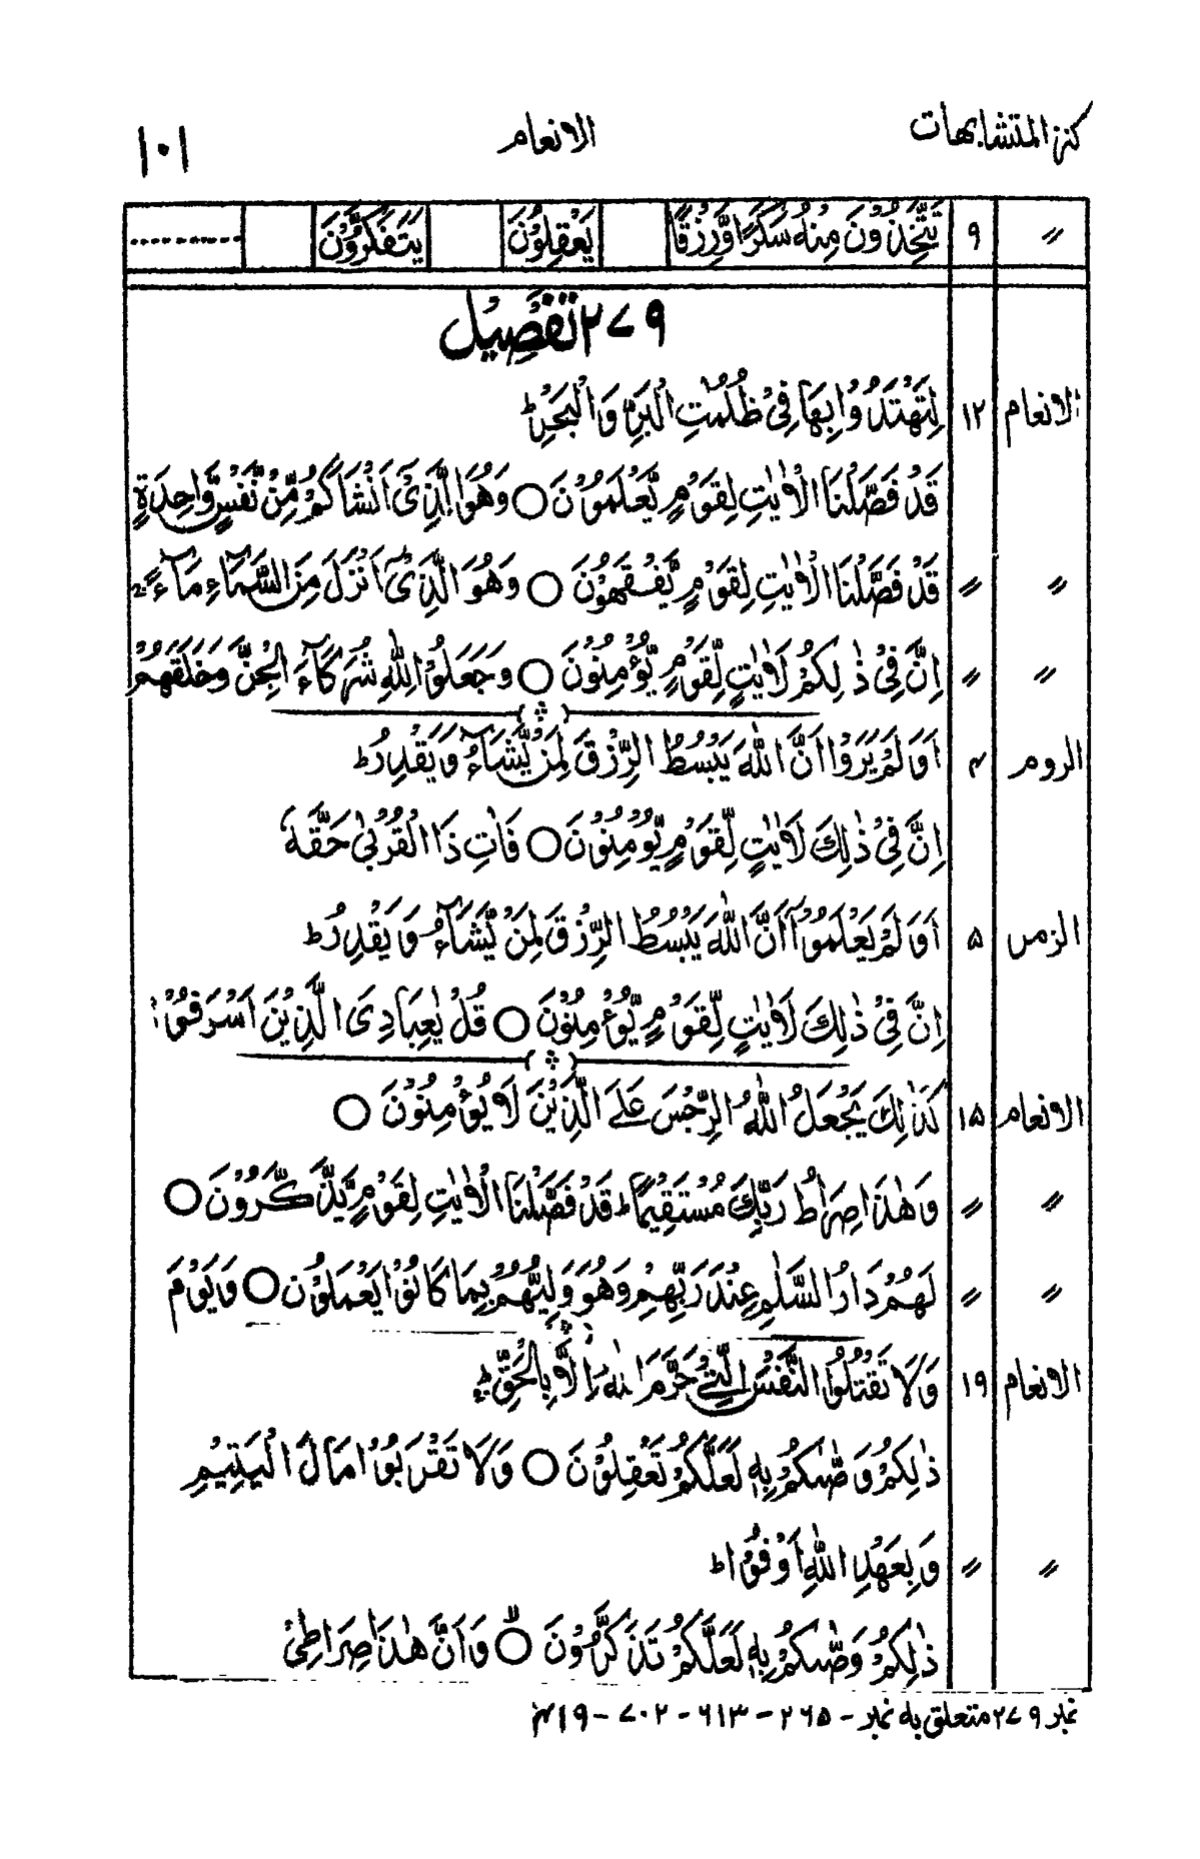 كنز المتشابهات الانعام ۱۰۱
〃 ۹ تَتَّخِذُوْنَ مِنْهُ سَكَرًا وَّرِزْقًا يَعْقِلُوْنَ يَتَفَكَّرُوْنَ ............
۲۷۹ تَفْصِيْل
الانعام ۱۲ لِتَهْتَدُوْا بِهَا فِىْ ظُلُمٰتِ الْبَرِّ وَالْبَحْرِ ؕ
قَدْ فَصَّلْنَا الْاٰيٰتِ لِقَوْمٍ يَّعْلَمُوْنَ ○ وَهُوَ الَّذِىْٓ اَنْشَاَكُمْ مِّنْ نَّفْسٍ وَّاحِدَةٍ
〃 〃 قَدْ فَصَّلْنَا الْاٰيٰتِ لِقَوْمٍ يَّفْقَهُوْنَ ○ وَهُوَ الَّذِىْٓ اَنْزَلَ مِنَ السَّمَآءِ مَآءً ۚ
〃 〃 اِنَّ فِىْ ذٰلِكُمْ لَاٰيٰتٍ لِّقَوْمٍ يُّؤْمِنُوْنَ ○ وَجَعَلُوْا لِلّٰهِ شُرَكَآءَ الْجِنَّ وَخَلَقَهُمْ
الروم ۴ اَوَلَمْ يَرَوْا اَنَّ اللّٰهَ يَبْسُطُ الرِّزْقَ لِمَنْ يَّشَآءُ وَيَقْدِرُ ؕ
اِنَّ فِىْ ذٰلِكَ لَاٰيٰتٍ لِّقَوْمٍ يُّؤْمِنُوْنَ ○ فَاٰتِ ذَا الْقُرْبٰى حَقَّهٗ
الزمر ۵ اَوَلَمْ يَعْلَمُوْٓا اَنَّ اللّٰهَ يَبْسُطُ الرِّزْقَ لِمَنْ يَّشَآءُ وَيَقْدِرُ ؕ
اِنَّ فِىْ ذٰلِكَ لَاٰيٰتٍ لِّقَوْمٍ يُّؤْمِنُوْنَ ○ قُلْ يٰعِبَادِىَ الَّذِيْنَ اَسْرَفُوْا
الانعام ۱۵ كَذٰلِكَ يَجْعَلُ اللّٰهُ الرِّجْسَ عَلَى الَّذِيْنَ لَا يُؤْمِنُوْنَ ○
〃 〃 وَهٰذَا صِرَاطُ رَبِّكَ مُسْتَقِيْمًا ؕ قَدْ فَصَّلْنَا الْاٰيٰتِ لِقَوْمٍ يَّذَّكَّرُوْنَ ○
〃 〃 لَهُمْ دَارُ السَّلٰمِ عِنْدَ رَبِّهِمْ وَهُوَ وَلِيُّهُمْ بِمَا كَانُوْا يَعْمَلُوْنَ ○ وَيَوْمَ
الانعام ۱۹ وَلَا تَقْتُلُوا النَّفْسَ الَّتِىْ حَرَّمَ اللّٰهُ اِلَّا بِالْحَقِّ ؕ
ذٰلِكُمْ وَصّٰىكُمْ بِهٖ لَعَلَّكُمْ تَعْقِلُوْنَ ○ وَلَا تَقْرَبُوْا مَالَ الْيَتِيْمِ
〃 〃 وَبِعَهْدِ اللّٰهِ اَوْفُوْا ؕ
ذٰلِكُمْ وَصّٰىكُمْ بِهٖ لَعَلَّكُمْ تَذَكَّرُوْنَ ○ وَاَنَّ هٰذَا صِرَاطِىْ
نمبر ۲۷۹ متعلق به نمبر - ۲۶۵ - ۶۱۳ - ۷۰۲ - ۴۱۹